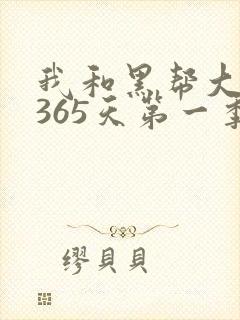 我和黑帮大
365天第一季
缪貝貝